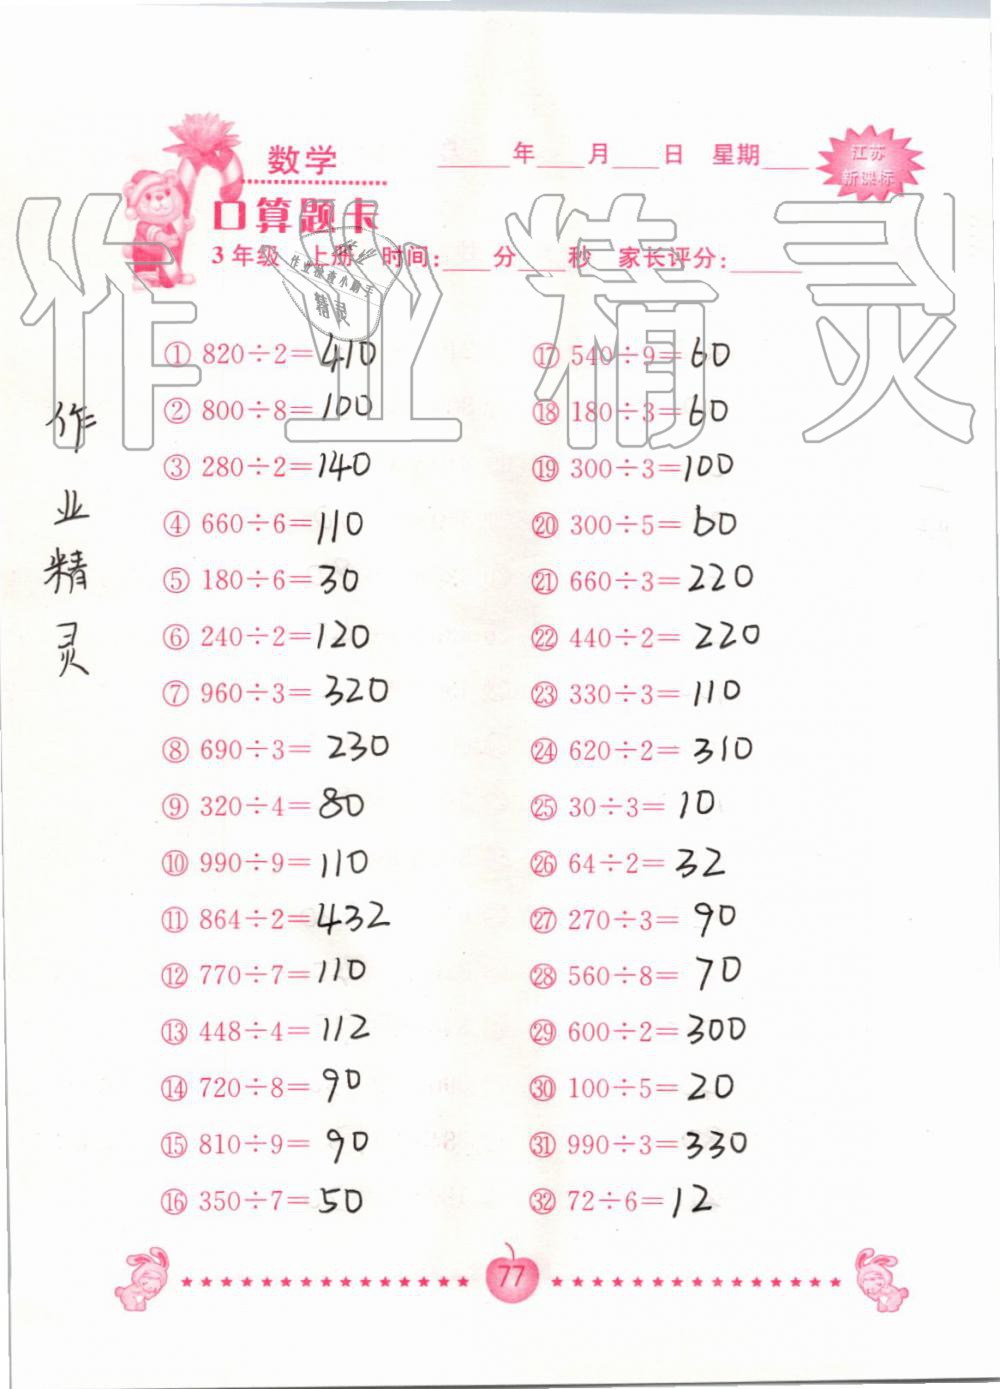 数学
____年____月____日 星期____
江苏
新课标
口算题卡
3年级 上册 时间:____分____秒 家长评分:____
作业检查小助手
精灵
作业精灵
作业精灵
① 820÷2=410
② 800÷8=100
③ 280÷2=140
④ 660÷6=110
⑤ 180÷6=30
⑥ 240÷2=120
⑦ 960÷3=320
⑧ 690÷3=230
⑨ 320÷4=80
⑩ 990÷9=110
⑪ 864÷2=432
⑫ 770÷7=110
⑬ 448÷4=112
⑭ 720÷8=90
⑮ 810÷9=90
⑯ 350÷7=50
⑰ 540÷9=60
⑱ 180÷3=60
⑲ 300÷3=100
⑳ 300÷5=60
㉑ 660÷3=220
㉒ 440÷2=220
㉓ 330÷3=110
㉔ 620÷2=310
㉕ 30÷3=10
㉖ 64÷2=32
㉗ 270÷3=90
㉘ 560÷8=70
㉙ 600÷2=300
㉚ 100÷5=20
㉛ 990÷3=330
㉜ 72÷6=12
77